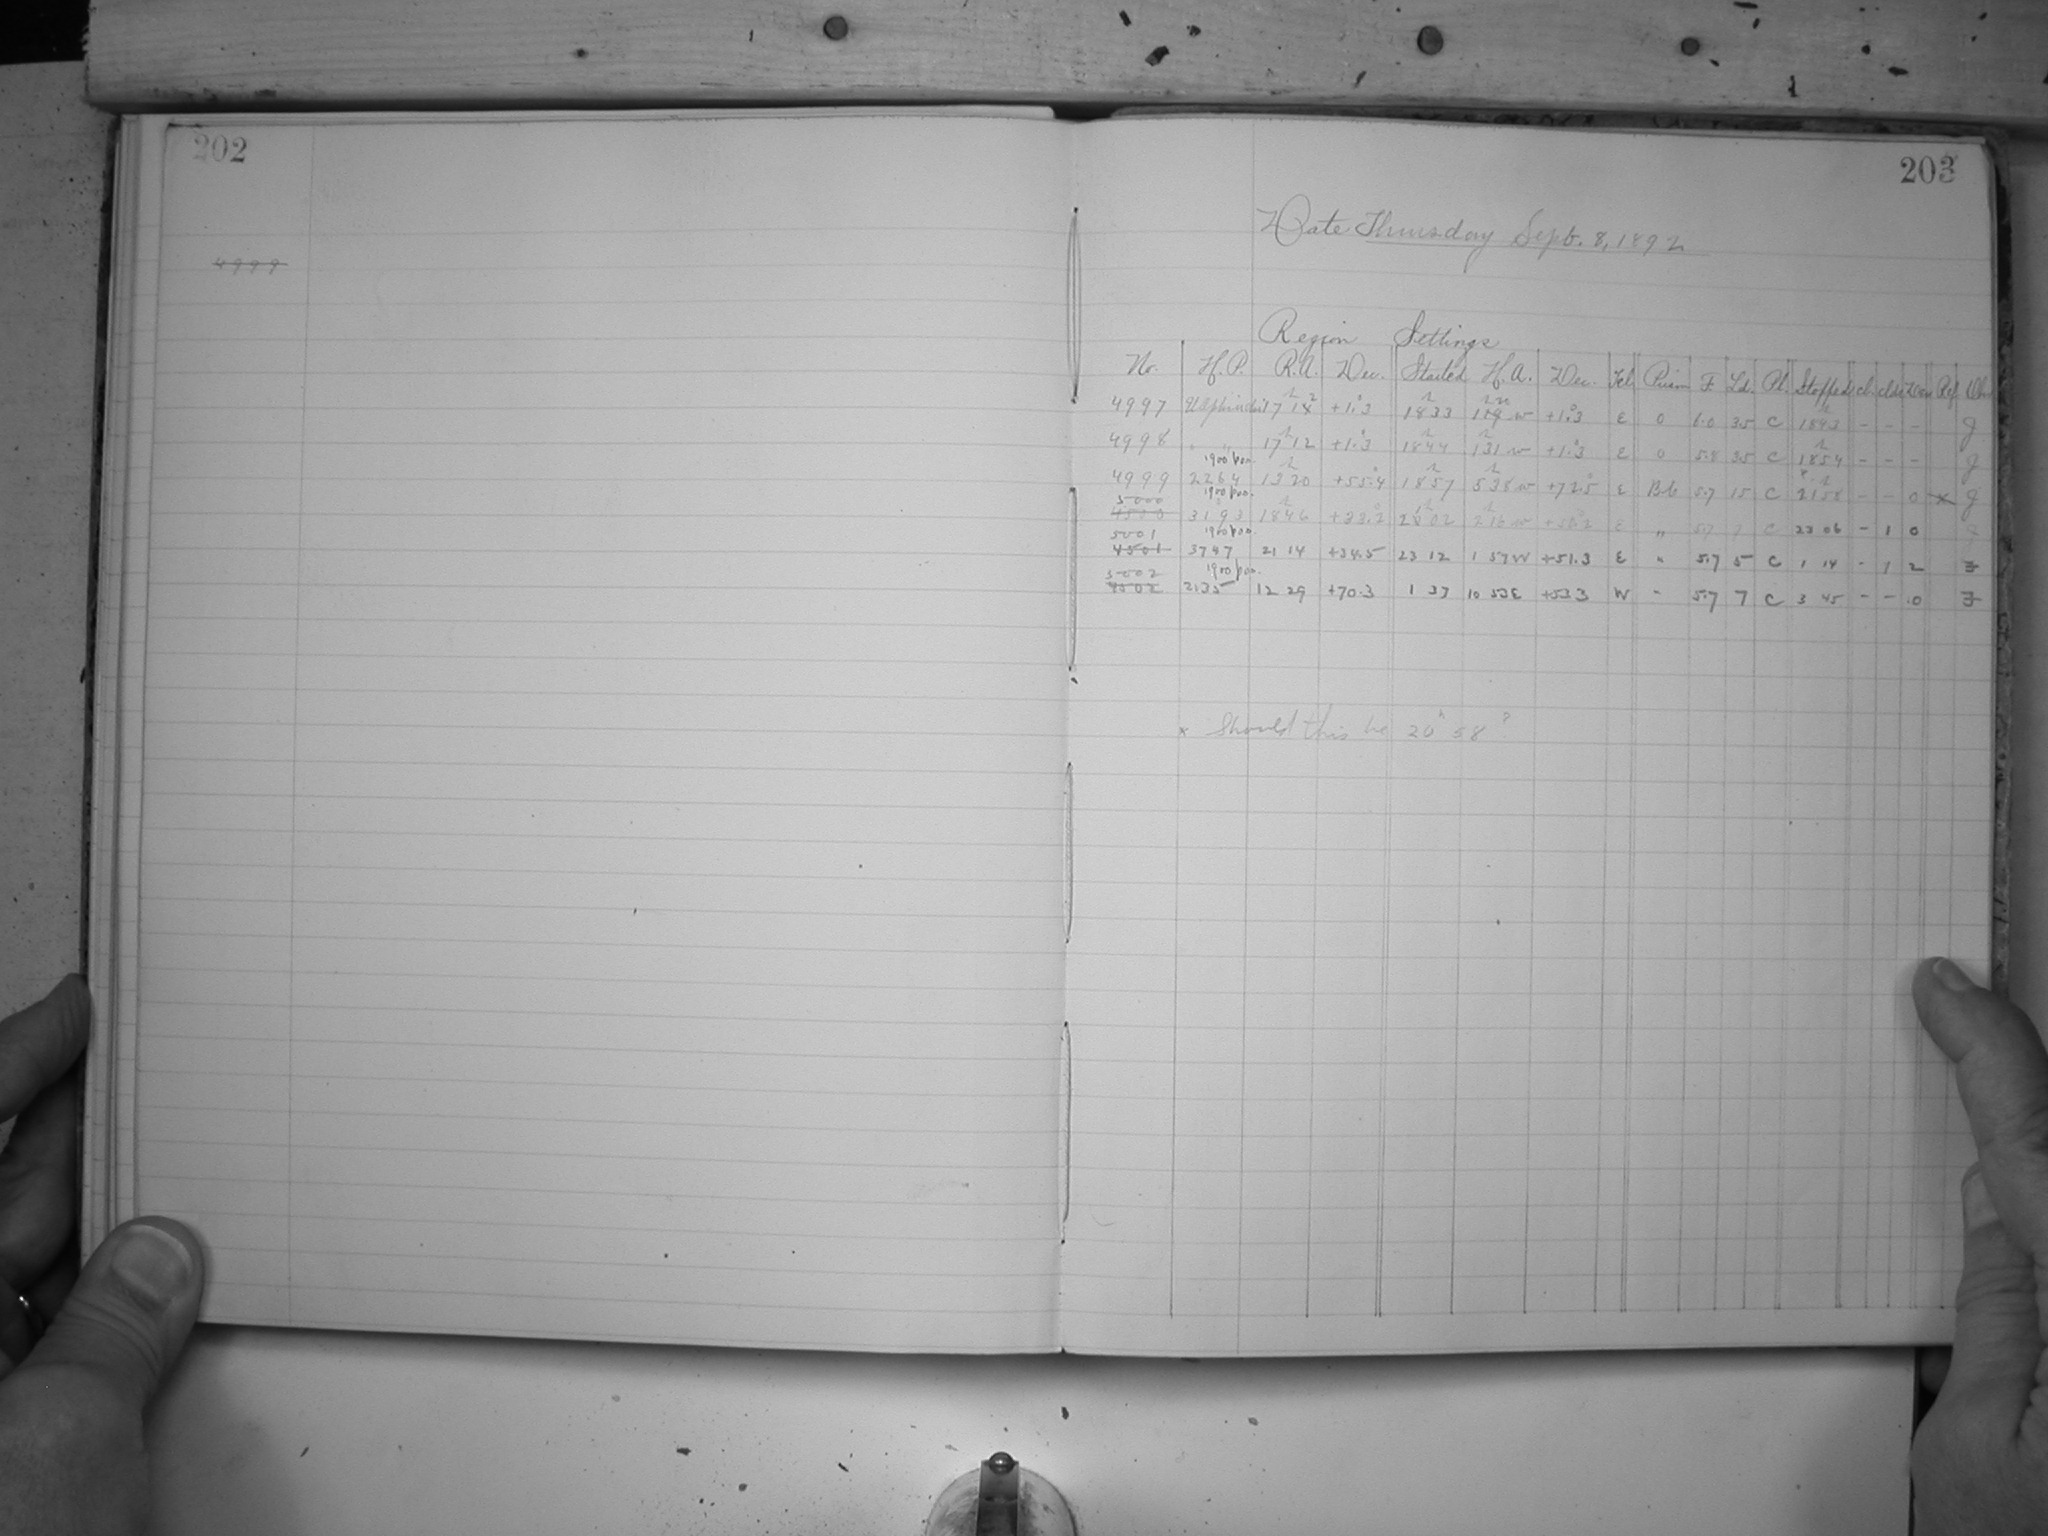 202
203
4999
Date Thursday Sept. 8, 1892
Region Settings
No. H.P. R.A. Dec. Started H.A. Dec. Tel. Prism F Ld. Pl. Stopped Ref Obs
4997 17 12 +1.3 18 33 1 19 w +1.3 E 0 6.0 35 C 1843 - - - J
4998 " " 17 12 +1.3 1844 1 31 w +1.3 E 0 5.8 35 C 1854 - - - J
1900 pos.
4999 2264 13 20 +55.4 1857 5 38 w +72.5 E Bb 5.7 15 C 21 58 - - 0 x J
5000 1900 pos.
4500 3193 18 46 +33.2 02 2 16 w E " 5.7 7 C 23 06 - 1 0
5001 1900 pos.
4501 3747 21 14 +34.5 23 12 1 57 W +51.3 E " 5.7 5 C 1 14 - 1 2 F
5002 1900 pos.
4502 2135 12 29 +70.3 1 37 10 53 E +53.3 W " 5.7 7 C 3 45 - - 0 F
x Should this be 20h 58?